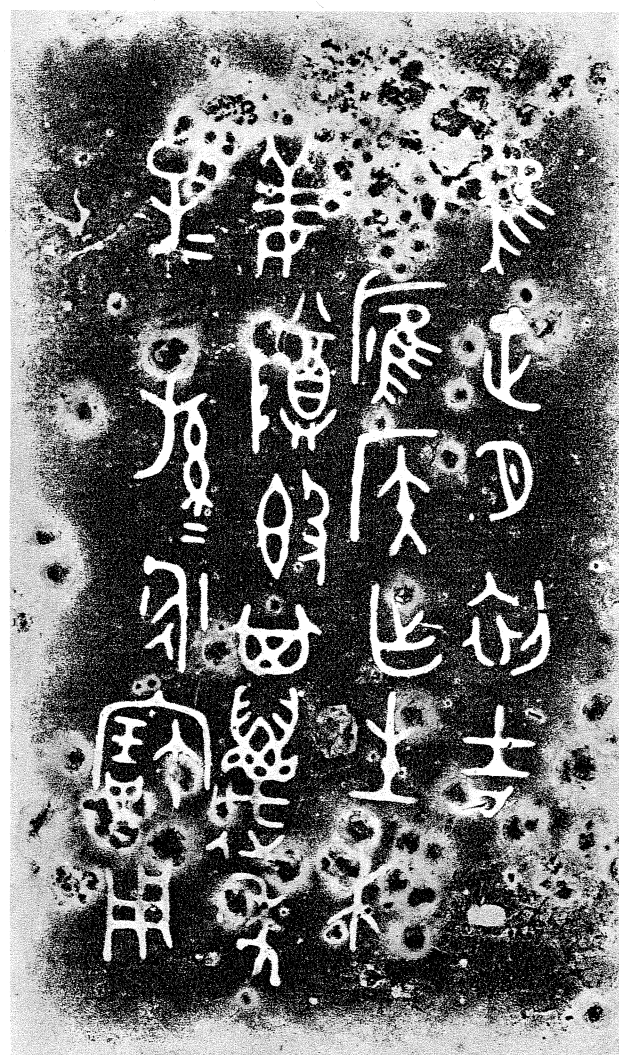 唯正月初吉丁
應侯乍生杙
姜䵼簋其萬年
子=孫=永寶用